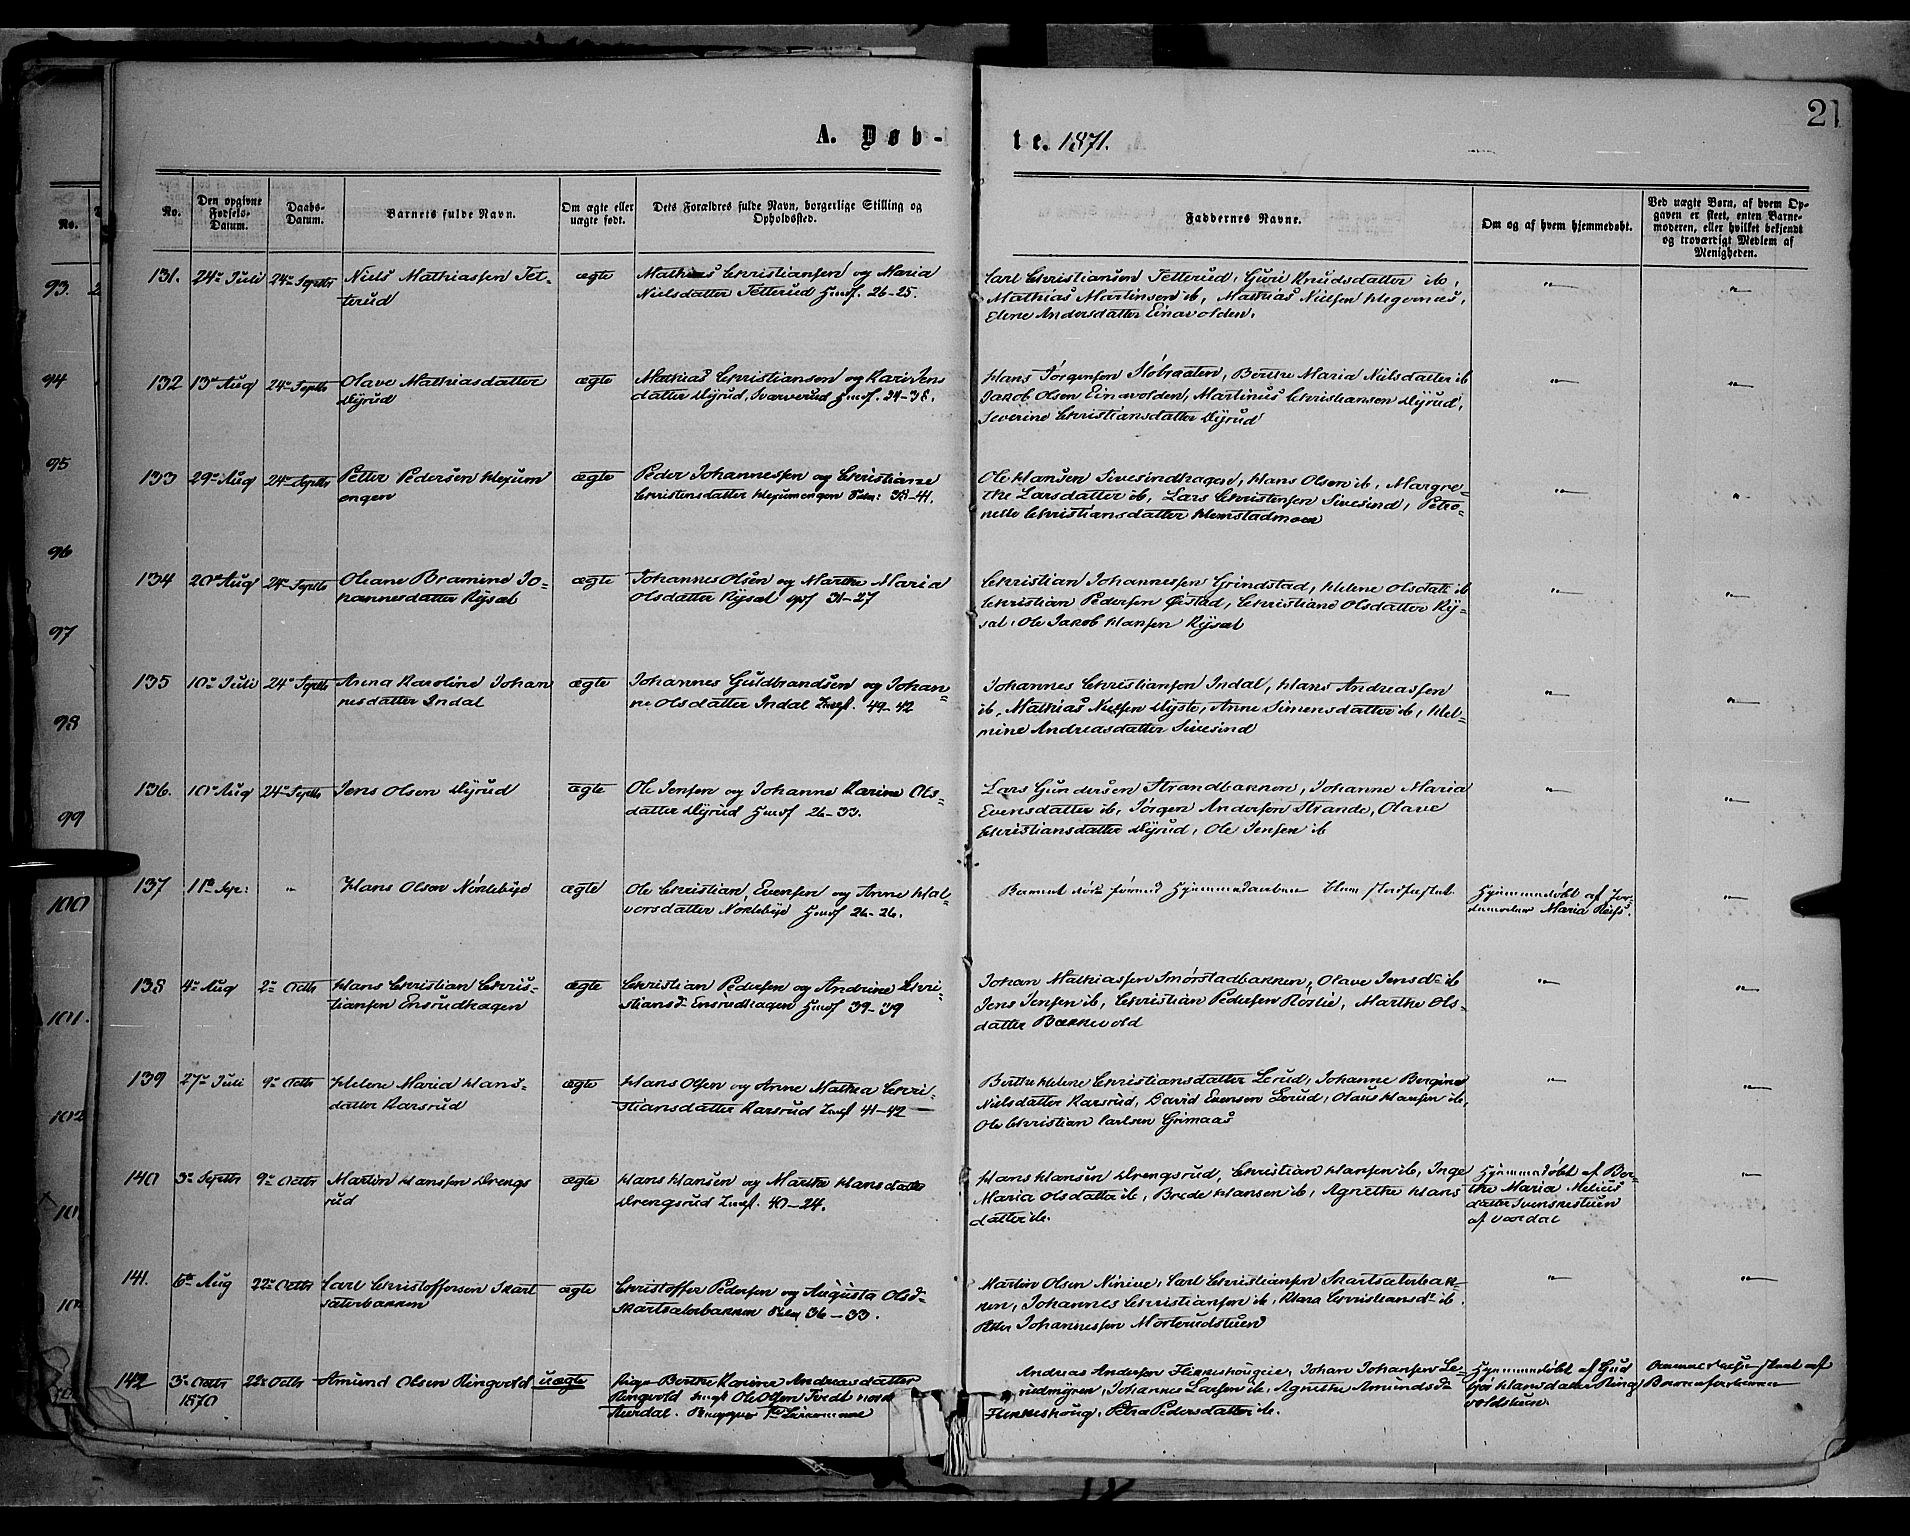 21
A. Døb-
te. 1871.
No.
Den opgivne Fødsels-Datum.
Daabs-Datum.
Barnets fulde Navn.
Om ægte eller uægte født.
Dets Forældres fulde Navn, borgerlige Stilling og Opholdssted.
Faddernes Navne.
Om og af hvem hjemmedøbt.
Ved uægte Børn, af hvem Opgaven er skeet, enten Barnemoderen, eller hvilket bekjendt og troværdigt Medlem af Menigheden.
No.
93.
94
95
96
97
98
99
100
101.
102
131. 24de Juli 24de Septbr Niels Mathiassen Tet-
terud
ægte
Mathias Christiansen og Maria
Nielsdatter Tetterud Husf. 26-25.
Carl Christiansen Tetterud, Guri Knudsdatter ib,
Mathias Martinsen ib, Mathias Nielsen Hegernæs,
Elene Andersdatter Einavolden.
132 13de Aug 24de Septbr Olave Mathiasdatter
Dyrud
ægte
Mathias Christiansen og Kari Jens
datter Dyrud, Svarverud Husf. 24-38.
Hans Jørgensen Støbraaten, Berthe Maria Nielsdatter ib
Jakob Olsen Einavolden, Martinus Christiansen Dyrud,
Severine Christiansdatter Dyrud
133 29de Aug 24de Septbr Petter Pedersen Hexum
engen
ægte
Peder Johannessen og Christiane
Christensdatter Hexumengen 38-41.
Ole Hansen Sivesindhagen, Hans Olsen ib, Margre-
the Larsdatter ib, Lars Christensen Sivesind, Petro-
nelle Christiansdatter Hemstadmoen
134 20de Aug 24de Septbr Oleane Bramine Jo-
hannesdatter Kysæl
ægte
Johannes Olsen og Marthe Maria
Olsdatter Kysæl 31-27
Christian Johannessen Grindstad, Helene Olsdatt ib
Christian Pedersen Øistad, Christiane Olsdatter Ky-
sæl, Ole Jakob Hansen Kysæl
135 10de Juli 24de Septbr Anna Karoline Johan
nesdatter Indal
ægte
Johannes Guldbrandsen og Johan-
ne Olsdatter Indal Inds. 49-42
Johannes Christiansen Indal, Hans Andreassen
ib, Mathias Nielsen Myste, Anne Simensdatter ib, Hel-
mine Andreasdatter Sivesind
136. 10de Aug 24de Septbr Jens Olsen Dyrud
ægte
Ole Jensen og Johanne Karine Ols-
datter Dyrud Husf 26-33.
Lars Gundersen Strandbakken, Johanne Maria
Evensdatter ib, Jørgen Andersen Strande, Olave
Christiansdatter Dyrud, Ole Jensen ib
137 11te Sep: Hans Olsen Nøklebye
ægte
Ole Christian Evensen og Anne Hal-
vorsdatter Nøklebye Husf 26-26.
Barnet døde førend Hjemmedaaben blev stadfæstet.
Hjemmedøbt af Jor-
demoder Maria
138 4de Aug 2de Octbr Hans Christian Chris-
tiansen Ensrudhagen
ægte
Christian Pedersen og Andrine Chri-
stiansd. Ensrudhagen Husf 39-39
Johan Mathiassen Smørstadbakken, Olave Jensdr ib
Jens Jensen ib, Christian Pedersen Roslie, Marthe Ols-
datter Bækkevold
139 27de Juli 9de Octbr Helene Maria Hans-
datter Karsrud
ægte
Hans Olsen og Anne Mathea Chri-
stiansdatter Karsrud Inds. 41-42
Berthe Helene Christiansdatter Lerud, Johanne Bergine
Nielsdatter Karsrud, David Evensen Lerud, Olaus Hansen ib,
Ole Christian Carlsen Grimaas
140 3de Septbr 9de Octbr Martin Hanssen Drengs
rud
ægte
Hans Hansen og Marthe Hansdatter
Drengsrud Inds. 40-24.
Hans Hansen Drengsrud, Christian Hansen ib, Inge
Maria Olsdatter ib, Brede Hansen ib, Agnethe Hans
datter ib.
Hjemmedøbt af Ber-
the Maria Melius
datter Svenskestuen
af Vardal
141. 6te Aug 22de Octbr Carl Christoffersen Skart
sæterbakken
ægte
Christoffer Pedersen og Augusta Olsd
Skartsæterbakken 36-33.
Martin Olsen Ninive, Carl Christiansen Skartsæterbak-
ken, Johannes Christiansen ib, Klara Christiansdr ib.
Peter Johannessen Morterudstuen
142 3de Octbr
1870
22de Octbr Amund Olsen Ringvold
uægte
Pige Berthe Karine Andreasdatter
Ringvold Ungk. Ole Olsen Tvedt nordre
Aurdal.
Andreas Andersen Flikkeshougie, Johan Johansen Le-
rudmyren, Johannes Larsen ib, Agnethe Amundsd
Flikkeshoug, Petra Pedersdatter ib.
Hjemmedøbt af Gud
bjør Hansdatter Ring
voldstuen.